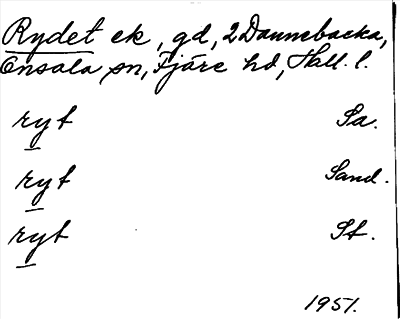 Rydet ek, gd, 2 Dannebacka,
Onsala sn, Fjäre hd, Hall. l.
ryt Sa.
ryt Sand.
ryt St.
1951.